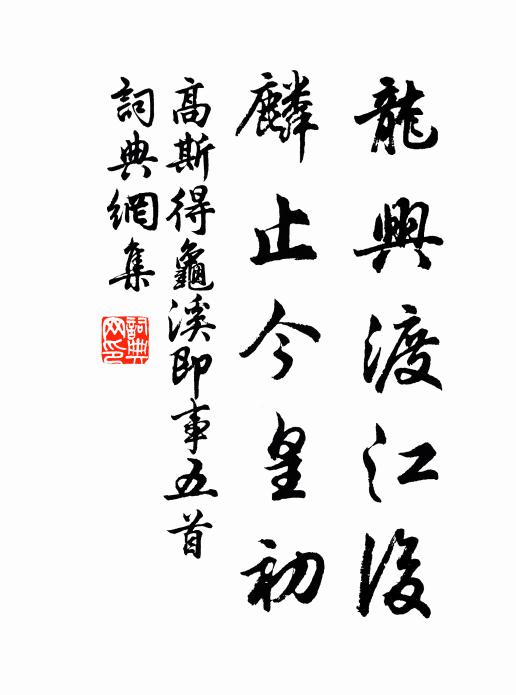 龍興渡江後
麟止今皇初
高斯得龜溪即事五首
詞典網集
詞典网印